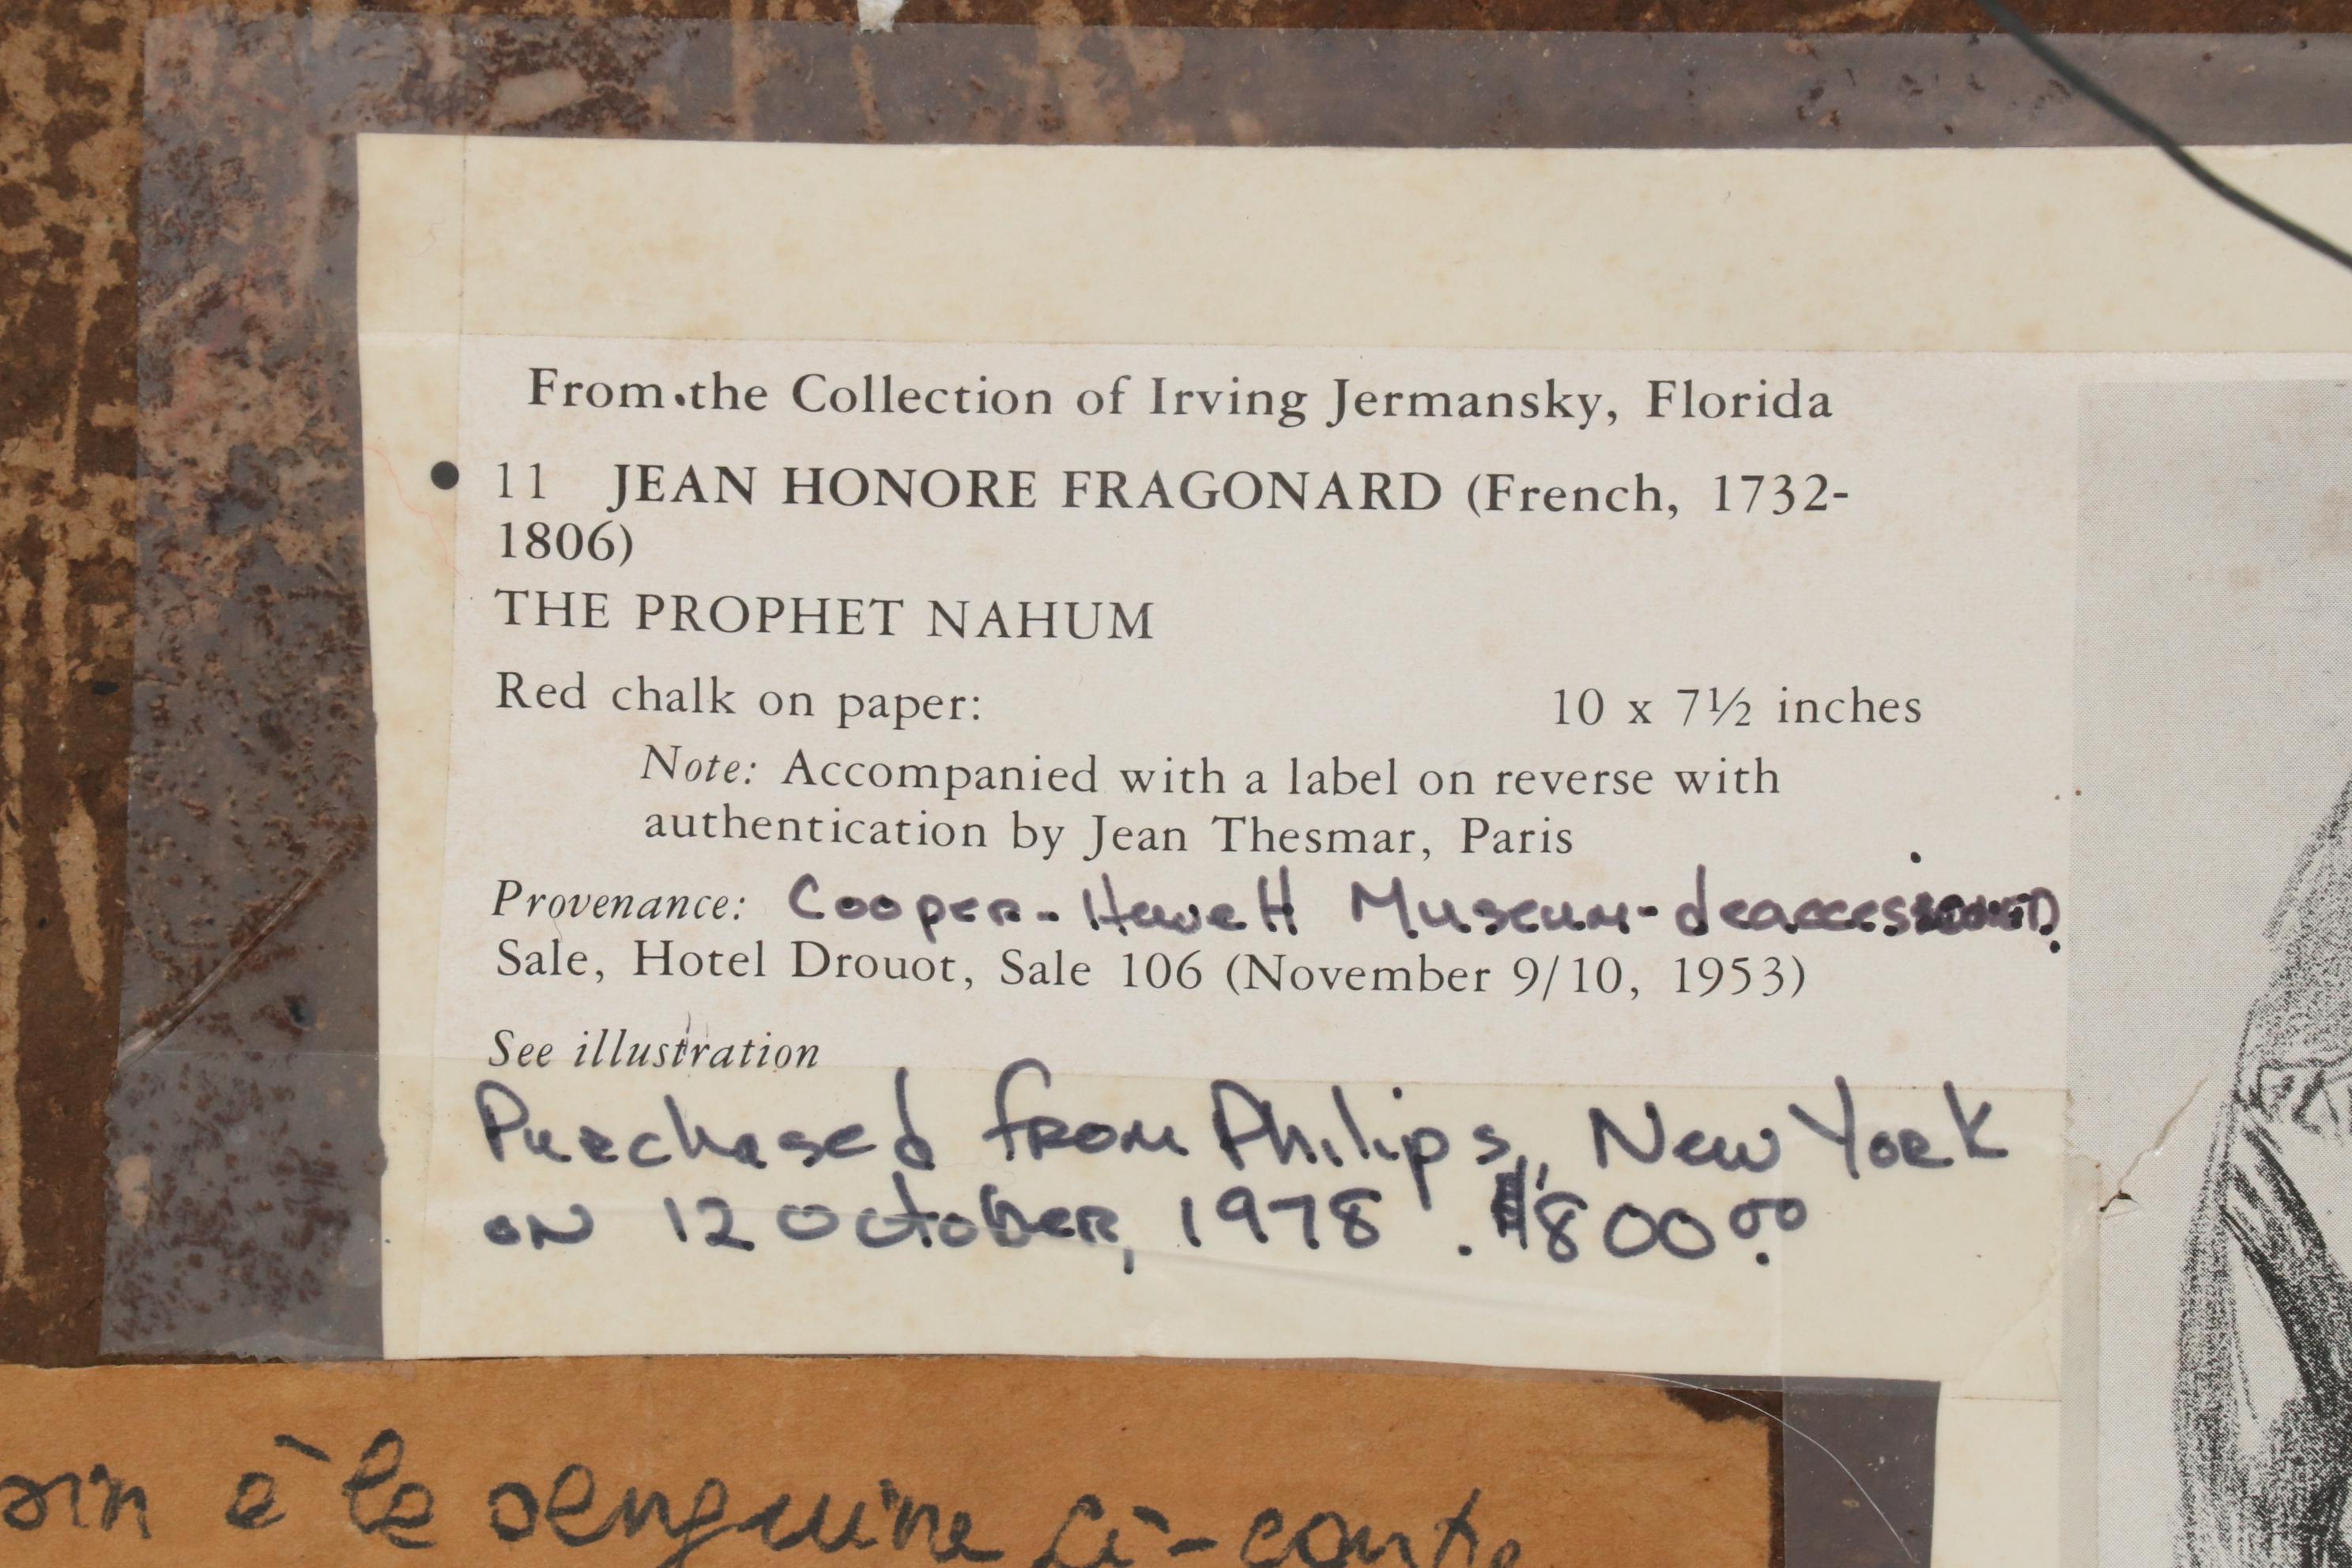 From the Collection of Irving Jermansky, Florida
• 11 JEAN HONORE FRAGONARD (French, 1732-
1806)
THE PROPHET NAHUM
Red chalk on paper: 10 x 7½ inches
Note: Accompanied with a label on reverse with
authentication by Jean Thesmar, Paris
Provenance: Cooper-Hewett Museum-deaccessioned.
Sale, Hotel Drouot, Sale 106 (November 9/10, 1953)
See illustration
Purchased from Philips, New York
on 12 October, 1978. $800.00
à la sanguine ci-contre